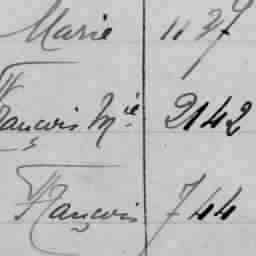 Marie 1137
François Mie 2142
François 744